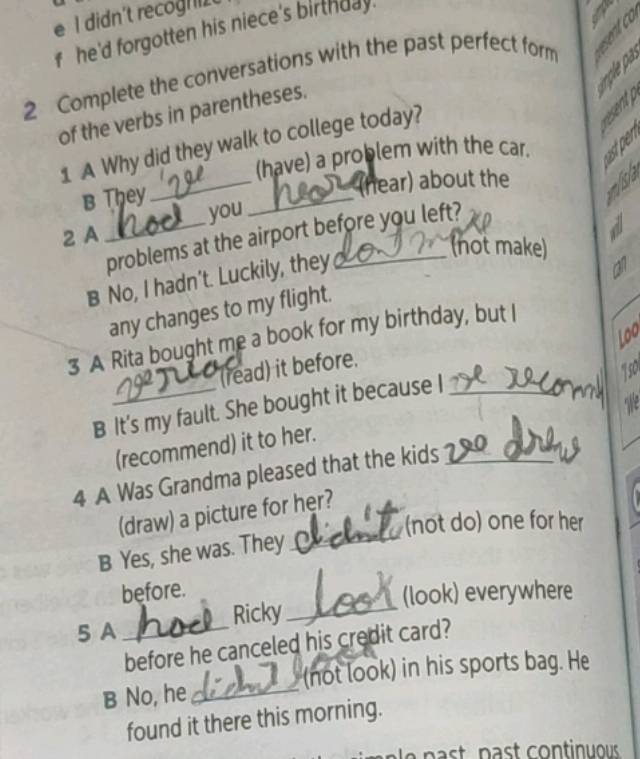 e I didn't
f he'd forgotten his niece's birthday.
2 Complete the conversations with the past perfect form
of the verbs in parentheses.
1 A Why did they walk to college today?
B They 've (have) a problem with the car.
2 A had you heard (hear) about the
problems at the airport before you left?
B No, I hadn't. Luckily, they don't make (not make)
any changes to my flight.
3 A Rita bought me a book for my birthday, but I
've read (read) it before.
B It's my fault. She bought it because I 've
(recommend) it to her.
4 A Was Grandma pleased that the kids drew
(draw) a picture for her?
B Yes, she was. They didn't (not do) one for her
before.
5 A had Ricky look (look) everywhere
before he canceled his credit card?
B No, he didn't look (not look) in his sports bag. He
found it there this morning.
past, past continuous
will
can